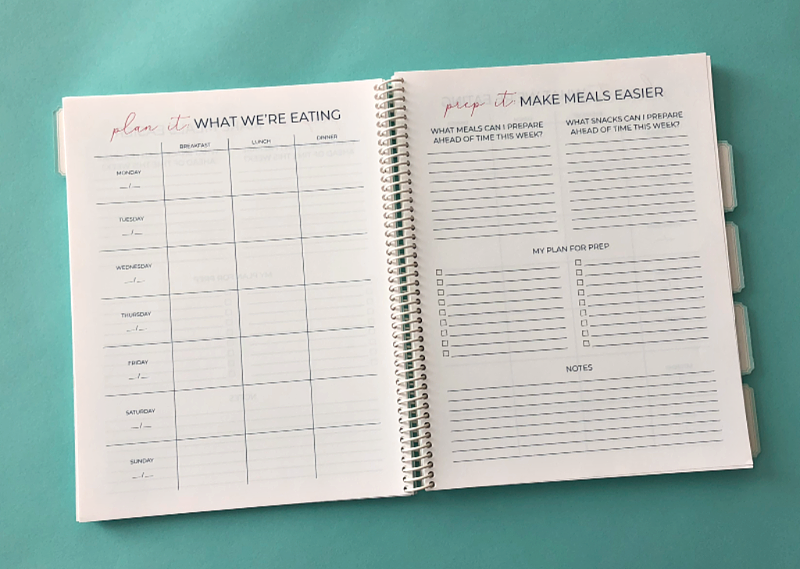 plan it: WHAT WE'RE EATING
BREAKFAST LUNCH DINNER
MONDAY
__/__
TUESDAY
__/__
WEDNESDAY
__/__
THURSDAY
__/__
FRIDAY
__/__
SATURDAY
__/__
SUNDAY
__/__
prep it: MAKE MEALS EASIER
WHAT MEALS CAN I PREPARE
AHEAD OF TIME THIS WEEK?
WHAT SNACKS CAN I PREPARE
AHEAD OF TIME THIS WEEK?
MY PLAN FOR PREP
NOTES